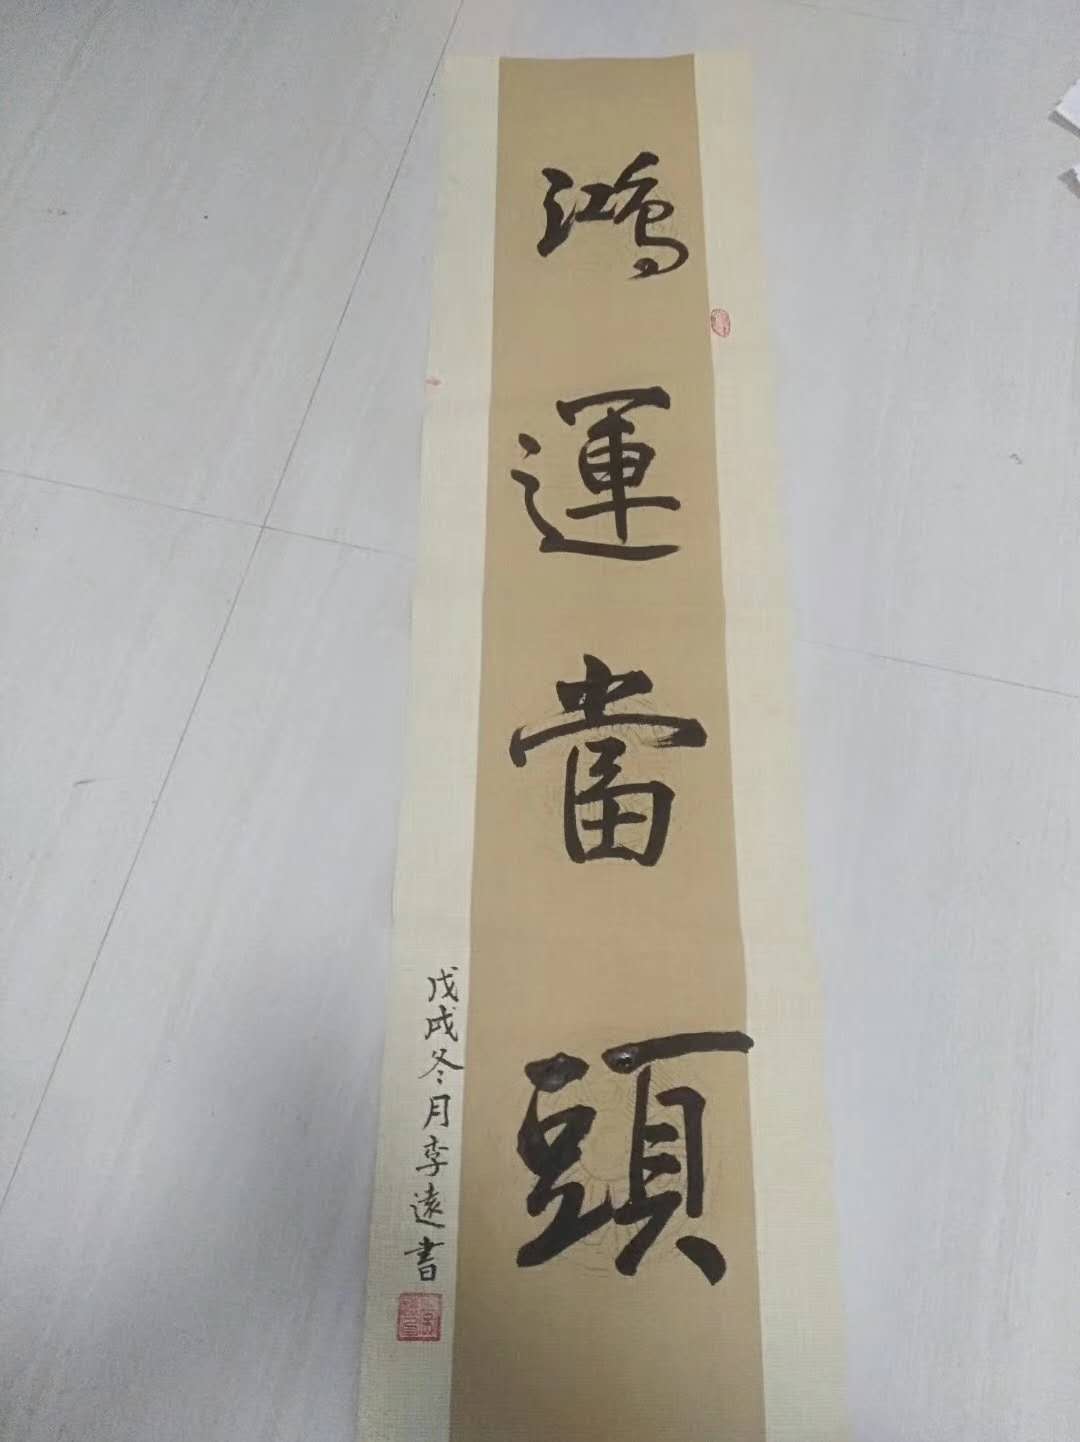 鴻運當頭
戊戌冬月李遠書